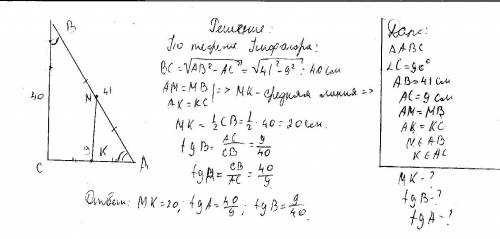 B
40
M 41
9
C
K
A
Решение:
По теореме Пифагора:
BC = √AB² - AC² = √41² - 9² = 40 см
AM = MB | => MK - средняя линия =>
AK = KC
MK = 1/2 CB = 1/2 · 40 = 20 см.
tgB = AC/CB = 9/40
tgA = CB/AC = 40/9
Ответ: MK = 20; tgA = 40/9; tgB = 9/40.
Дано:
△ABC
∠C = 90°
AB = 41 см
AC = 9 см
AM = MB
AK = KC
M ∈ AB
K ∈ AC
MK - ?
tgB - ?
tgA - ?